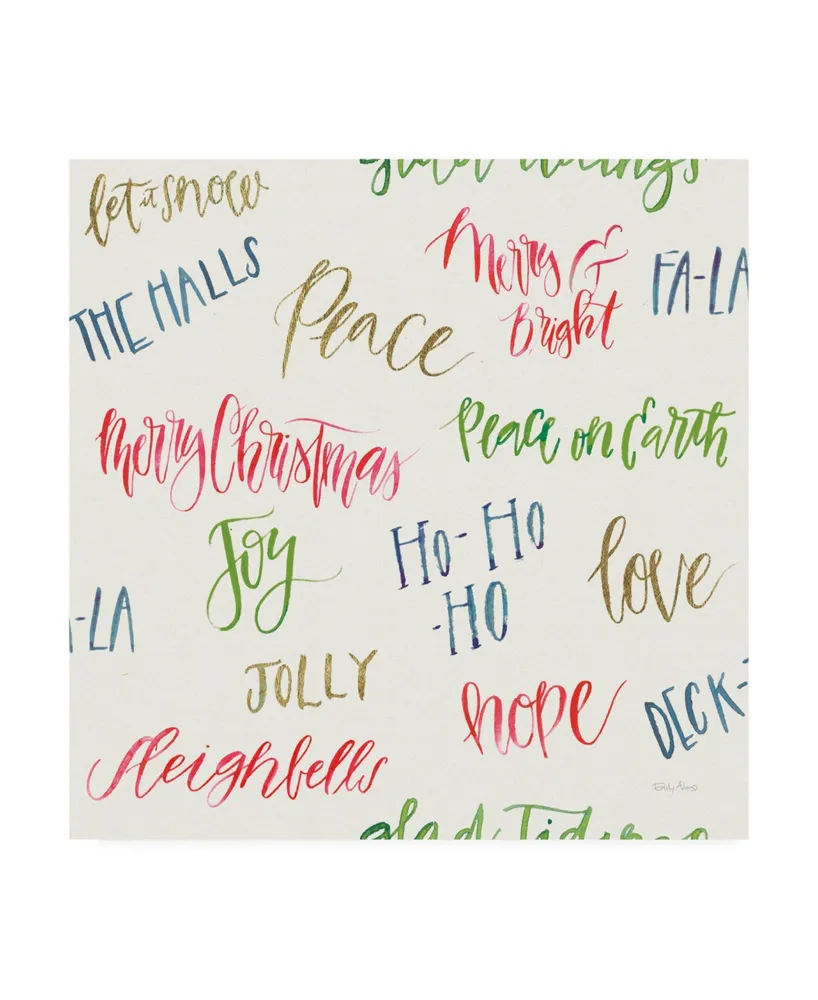 glad tidings
let it snow
Merry &
Bright
FA-LA
THE HALLS
Peace
Merry Christmas
Peace on Earth
Joy
Ho-Ho
-HO
love
-LA
JOLLY
hope
DECK-
Sleighbells
Emily Adams
glad Tidings